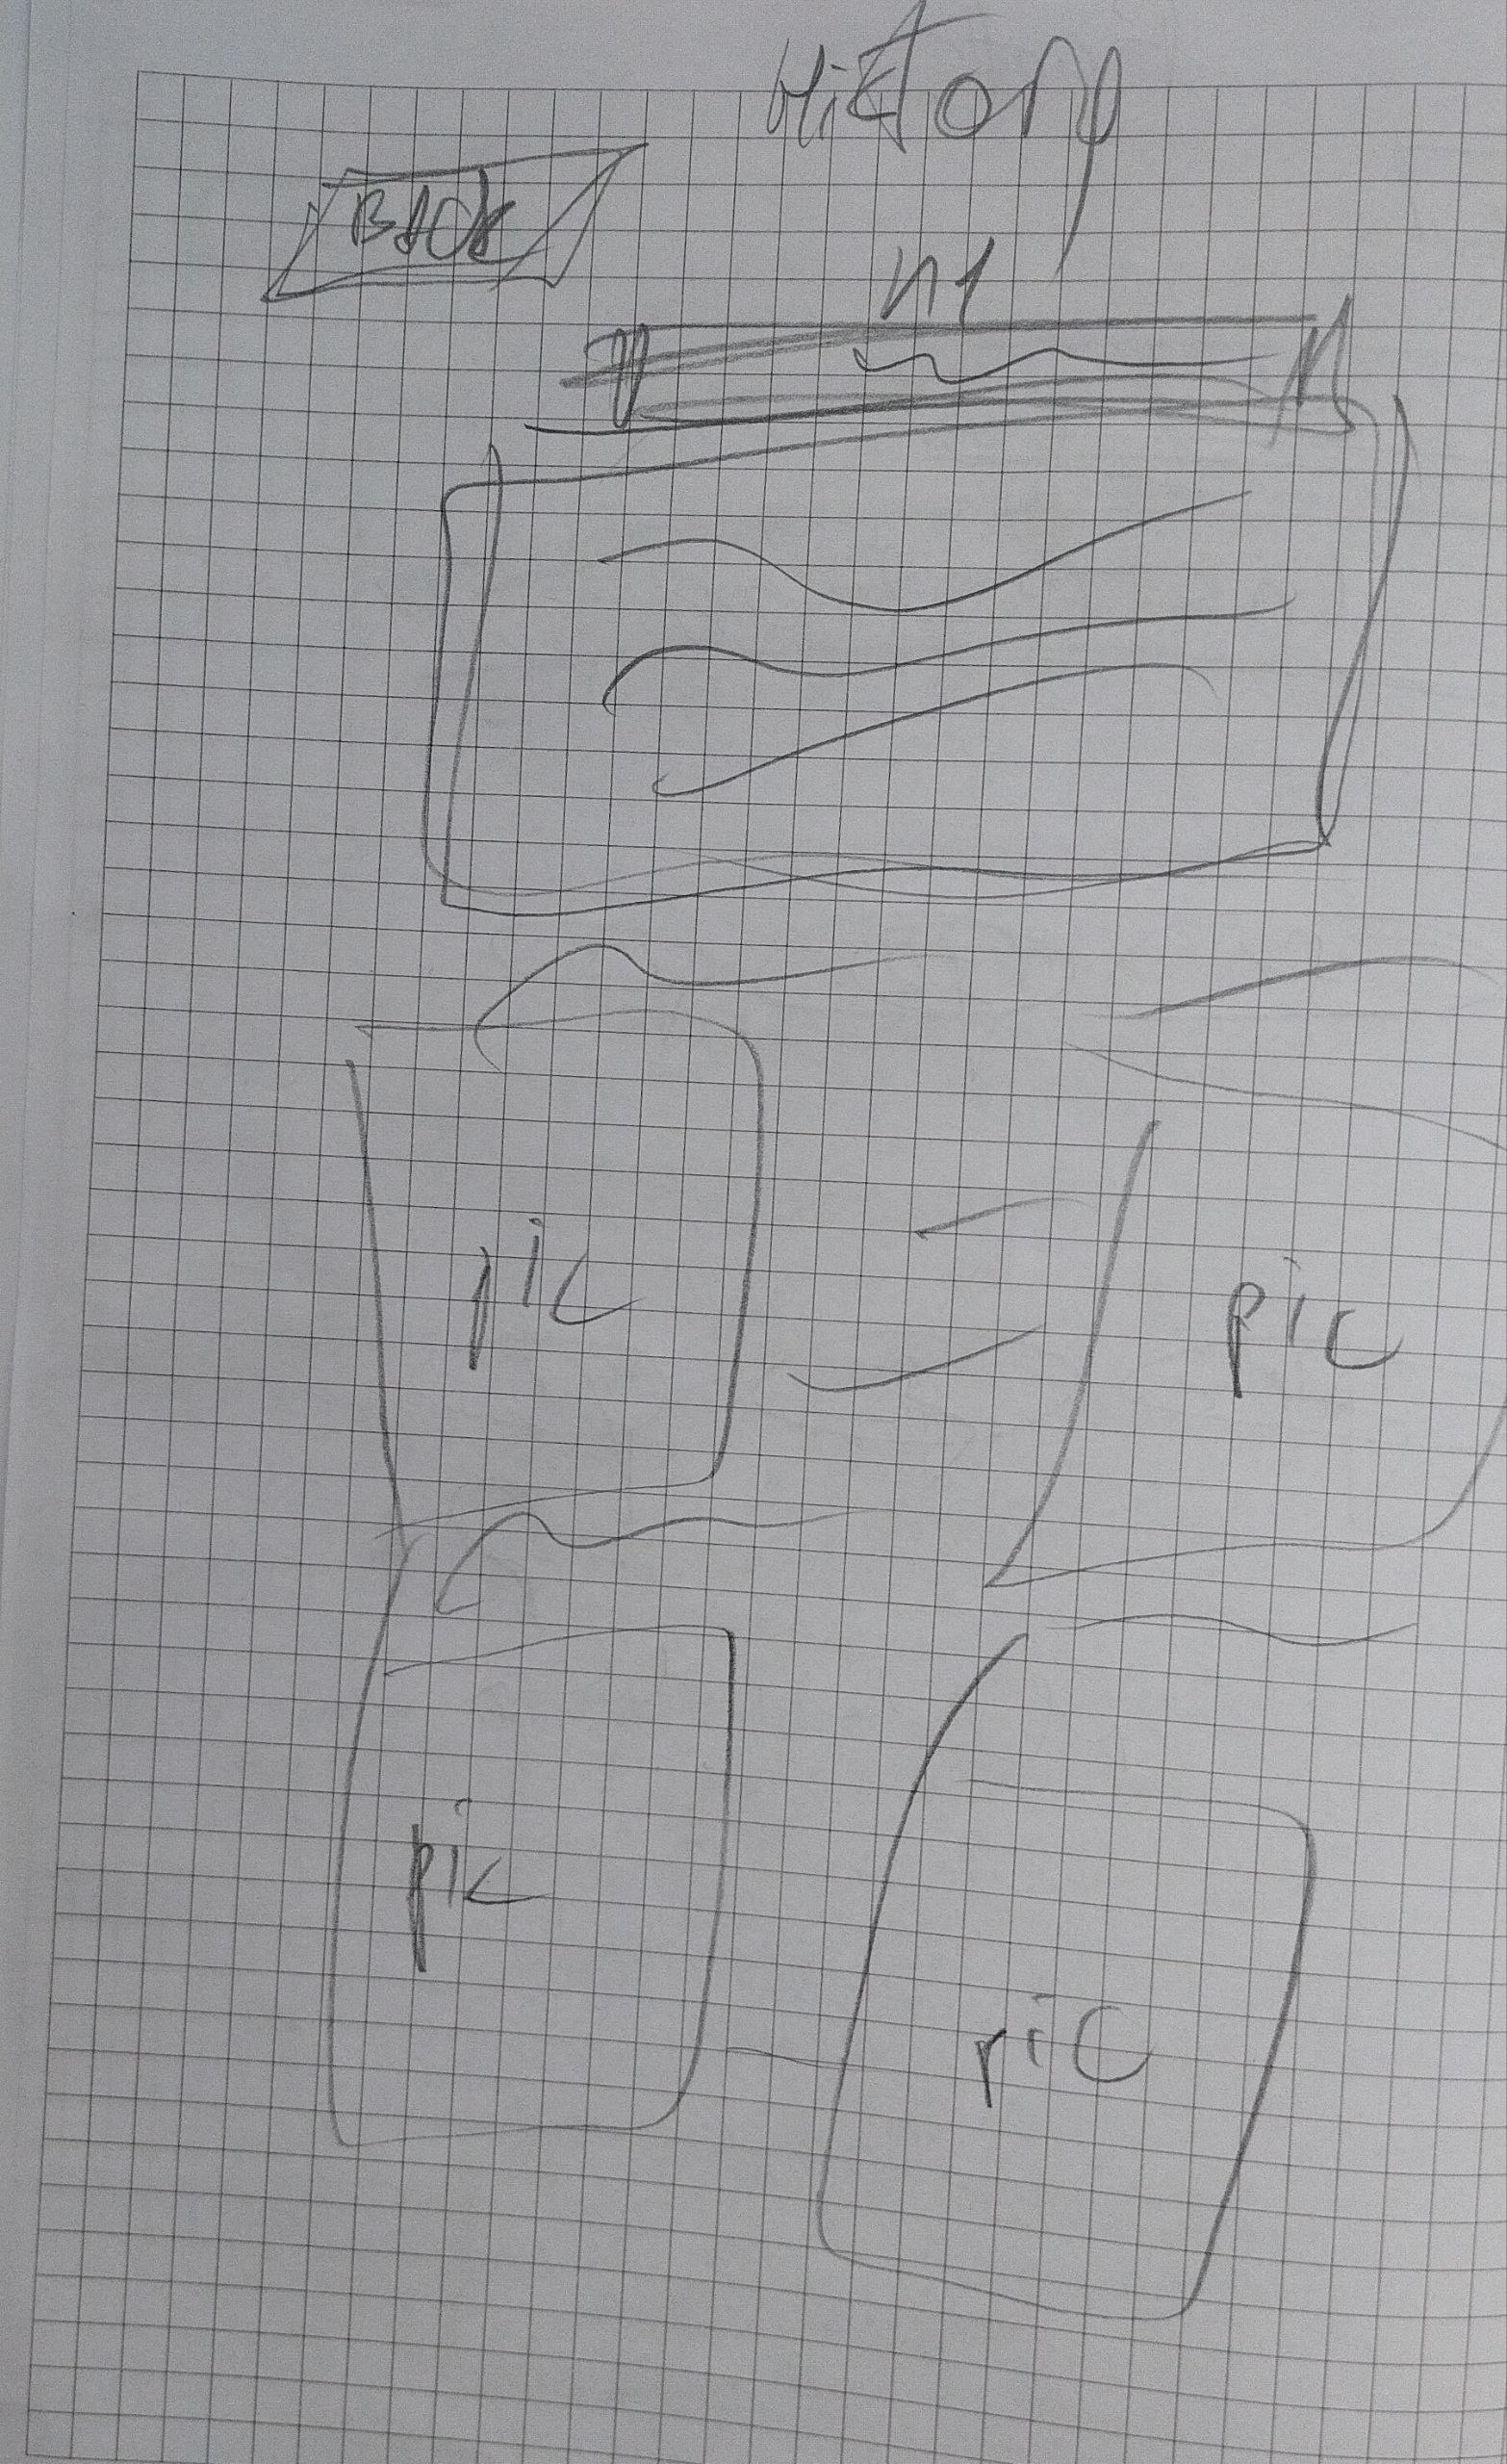 History
BACK
h1
pic
pic
pic
pic